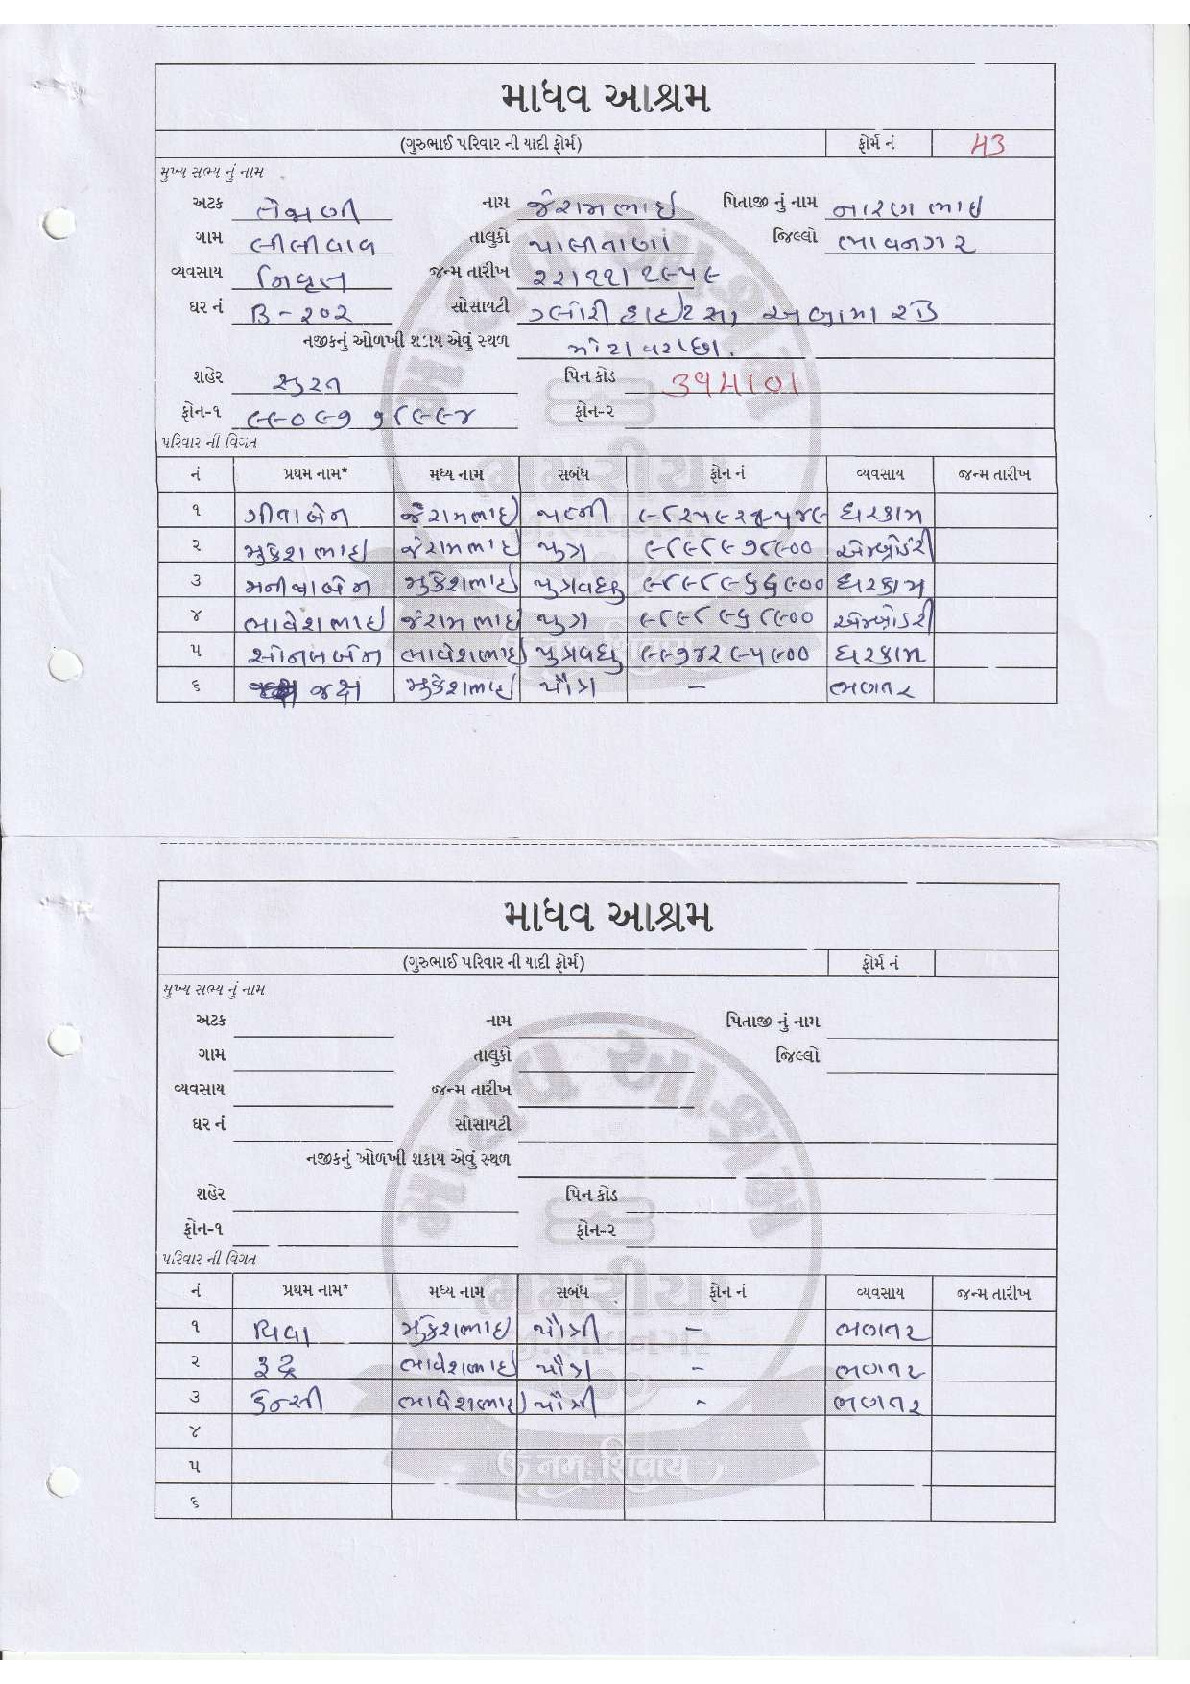 માધવ આશ્રમ
(ગુરુભાઈ પરિવાર ની યાદી ફોર્મ) ફોર્મ નં 43
મુખ્ય સભ્ય નું નામ
અટક લેઝણી નામ જેરામભાઇ પિતાજી નું નામ નારણભાઇ
ગામ લીલીવાવ તાલુકો પાલીતાણા જિલ્લો ભાવનગર
વ્યવસાય નિવૃત જન્મ તારીખ ૨૨/૧૨/૧૯૫૯
ઘર નં B-૨૦૨ સોસાયટી ગ્લોરી હાઇટસ, અબ્રામા રોડ
નજીકનું ઓળખી શકાય એવું સ્થળ મોટા વરાછા.
શહેર સુરત પિન કોડ 394101
ફોન-૧ ફોન-૨
પરિવાર ની વિગત
નં પ્રથમ નામ* મધ્ય નામ સબંધ ફોન નં વ્યવસાય જન્મ તારીખ
૧ ગીતાબેન જેરામભાઇ પત્ની ઘરકામ
૨ મુકેશભાઇ જેરામભાઇ પુત્ર ૯૮૯૮૯૭૮૯૦૦ એમ્બ્રોડરી
૩ મનીષાબેન મુકેશભાઇ પુત્રવધુ ૯૮૯૮૯૬૬૯૦૦ ઘરકામ
૪ ભાવેશભાઇ જેરામભાઇ પુત્ર ૯૮૯૮૯૬૮૯૦૦ એમ્બ્રોડરી
૫ સોનલબેન ભાવેશભાઇ પુત્રવધુ ૯૯૭૪૨૯૫૯૦૦ ઘરકામ
૬ જક્ષ મુકેશભાઇ પૌત્ર - ભણતર
માધવ આશ્રમ
(ગુરુભાઈ પરિવાર ની યાદી ફોર્મ) ફોર્મ નં
મુખ્ય સભ્ય નું નામ
અટક નામ પિતાજી નું નામ
ગામ તાલુકો જિલ્લો
વ્યવસાય જન્મ તારીખ
ઘર નં સોસાયટી
નજીકનું ઓળખી શકાય એવું સ્થળ
શહેર પિન કોડ
ફોન-૧ ફોન-૨
પરિવાર ની વિગત
નં પ્રથમ નામ* મધ્ય નામ સબંધ ફોન નં વ્યવસાય જન્મ તારીખ
૧ મુકેશભાઇ પૌત્રી - ભણતર
૨ રૂદ્ર ભાવેશભાઇ પૌત્ર - ભણતર
૩ ભાવેશભાઇ પૌત્રી - ભણતર
૪
૫
૬
નમઃ શિવાય